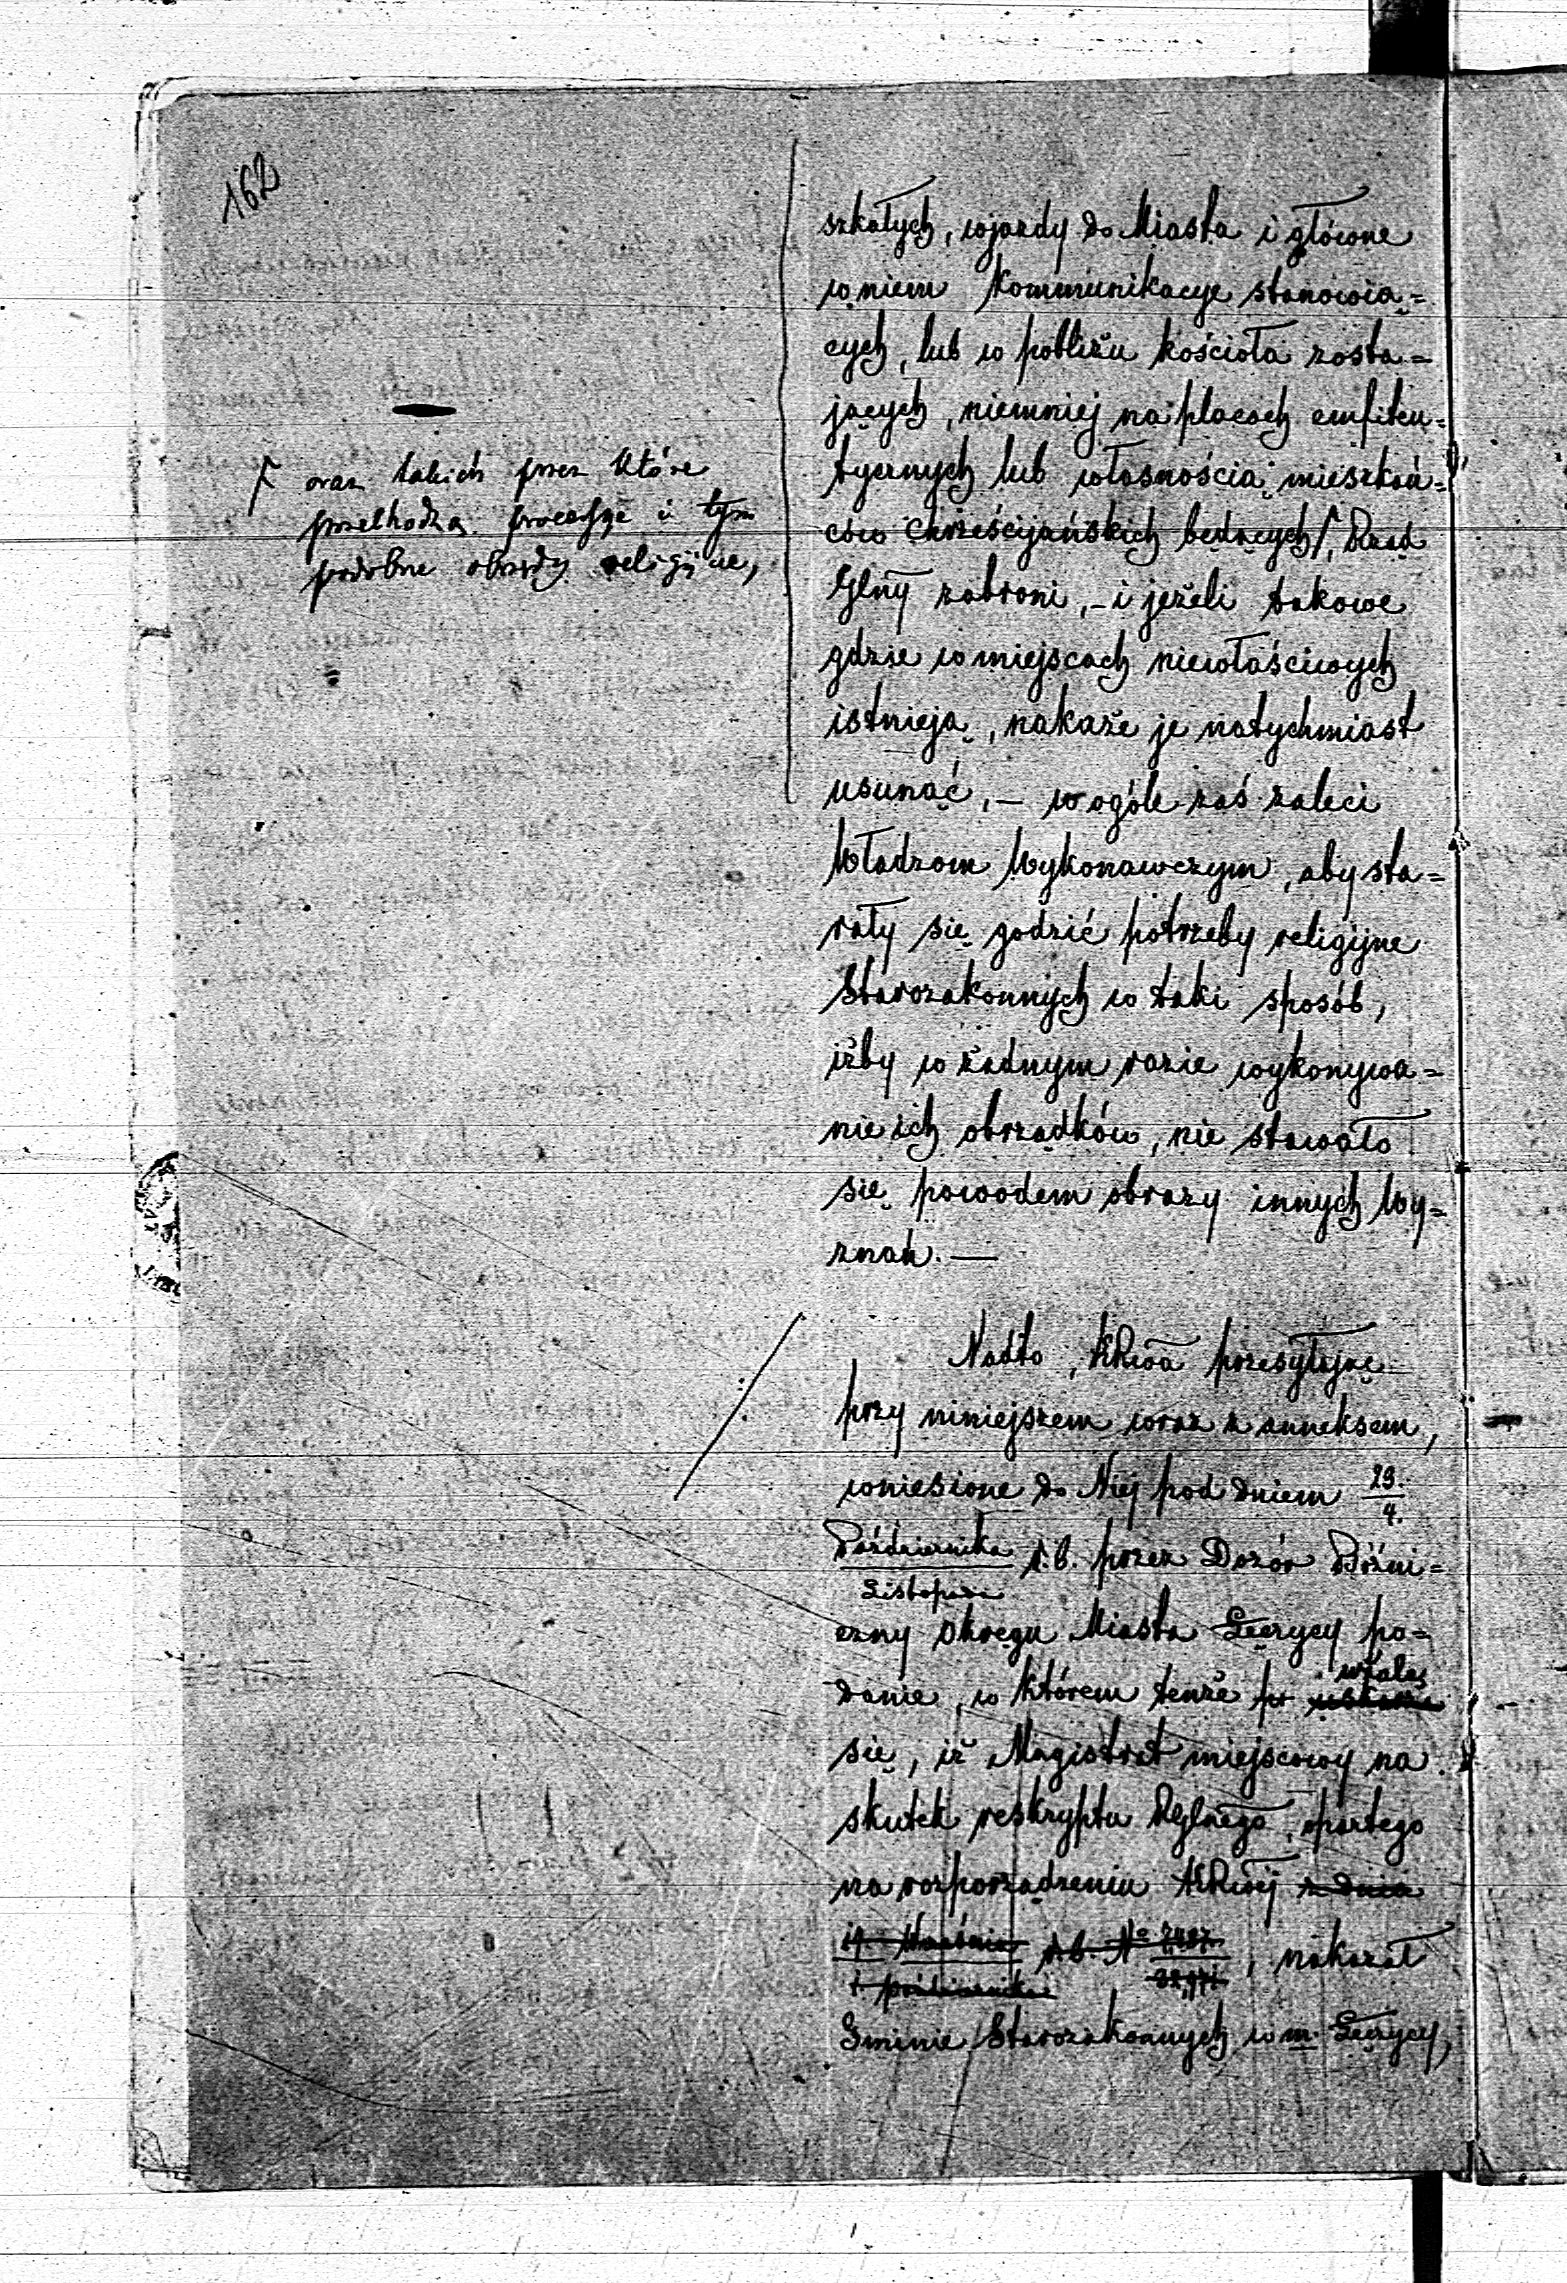 162
szkałych, wjazdy do Miasta i główne
w niem kommunikacye stanowią=
cych, lub w pobliżu kościoła zosta=
jących, niemniej na placach emfiteu=
tycznych lub własnością mieszkań=
ców chrześcijańskich będących /, Rząd
Glny zabroni, – i jeżeli takowe
gdzie w miejscach niewłaściwych
istnieją, nakaże je natychmiast
usunąć, – w ogóle zaś zaleci
Władzom Wykonawczym, aby sta=
rały się godzić potrzeby religijne
Starozakonnych w taki sposób,
iżby w żadnym razie wykonywa=
nie ich obrządków, nie stawało
się powodem obrazy innych Wy=
znań. —
/ oraz takich przez które
przechodzą processye i tym
podobne obrzędy religijne,
Nadto, KRwa przesyłając
przy niniejszem wraz z anneksem,
wniesione do Niej pod dniem 23./4.
Października/Listopada r. b. przez Dozór Bóżni=
czny Okręgu Miasta Łęczycy po=
danie, w którem tenże użala
się, iż Magistrat miejscowy na
skutek reskryptu RGlnego, opartego
na rozporządzeniu KRwej z dnia
19 Września/1 października r. b. No, nakazał
Gminie Starozakonnych w m. Łęczycy,